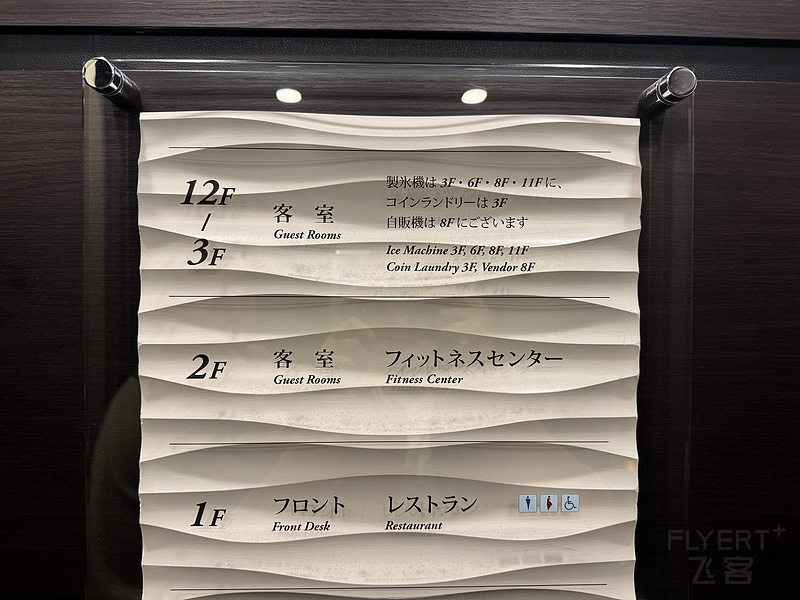 12F
/
3F
客 室
Guest Rooms
製氷機は 3F・6F・8F・11Fに、
コインランドリーは 3F
自販機は 8Fにございます
Ice Machine 3F, 6F, 8F, 11F
Coin Laundry 3F, Vendor 8F
2F
客 室
Guest Rooms
フィットネスセンター
Fitness Center
1F
フロント
Front Desk
レストラン
Restaurant
FLYERT+
飞客